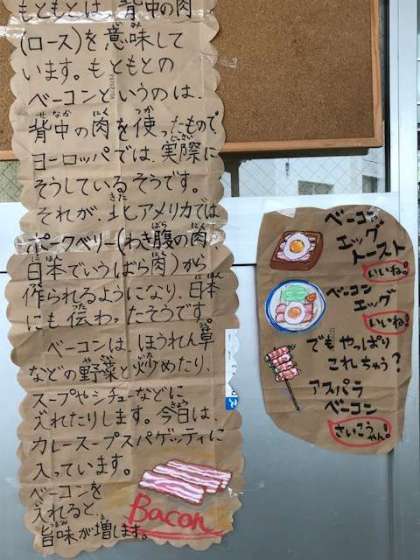 もともとは、背中の肉
(ロース)を意味して
います。もともとの
ベーコンというのは、
背中の肉を使ったもので
ヨーロッパでは、実際に
そうしているそうです。
それが、北アメリカでは
ポークベリー(わき腹の肉
日本でいうばら肉)から
作られるようになり、日本
にも伝わったそうです。
ベーコンは、ほうれん草
などの野菜と炒めたり、
スープやシチューなどに
入れたりします。今日は、
カレースープスパゲッティに
入っています。
ベーコンを
入れると、
旨味が増します。
Bacon
ベーコン
エッグ
トースト
いいね。
ベーコン
エッグ
いいね!
でもやっぱり
これちゃう?
アスパラ
ベーコン
さいこうやん!